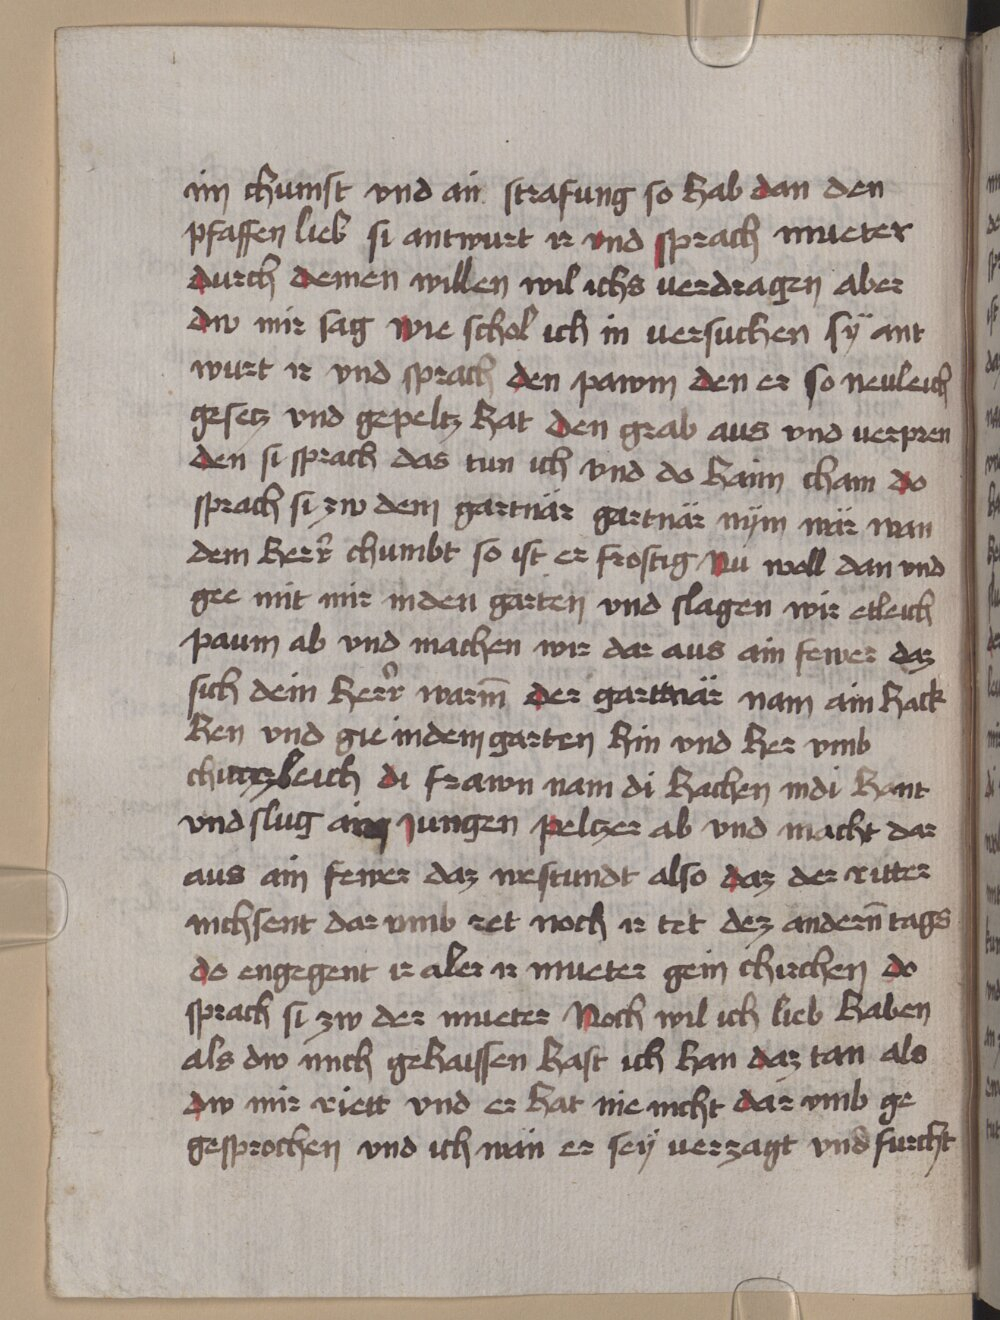 im chumst vnd an strafung so hab dan den
pfaffen lieb si antwurt ir vnd sprach mueter
durch deinen willen wil ichs uerdragen aber
dw mir sag wie schol ich in uersuchen sÿ ant
wurt ir vnd sprach den pawm den er so neuleich
gesetz vnd gepeltz hat den grab aus vnd uerpren
den si sprach das tun ich vnd do haim cham do
sprach si zw dem gartnär gartnär nÿm wär wan
dein herr chumbt so ist er frostig Nu woll dan vnd
gee mit mir inden garten vnd slagen wir etleich
paum ab vnd machen wir dar aus ain fewer daz
sich dein herr warm̄ der gartnär nam ain hack
hen vnd gie indem garten hin vnd her vmb
di frawn nam di hachen indi hant
vnd slug jungen peltzer ab vnd macht dar
aus ain fewer daz westundt also daz der ritter
nichsent dar vmb ret noch ir tet dez andern̄ tags
do engegent ir aber ir mueter gein chirchen do
sprach si zw der mueter Noch wil ich lieb haben
als dw mich gehaissen hast ich han daz tan als
dw mir riett vnd er hat nie nicht dar vmb ge
gesprochen vnd ich wän er seÿ uerzagt vnd furcht